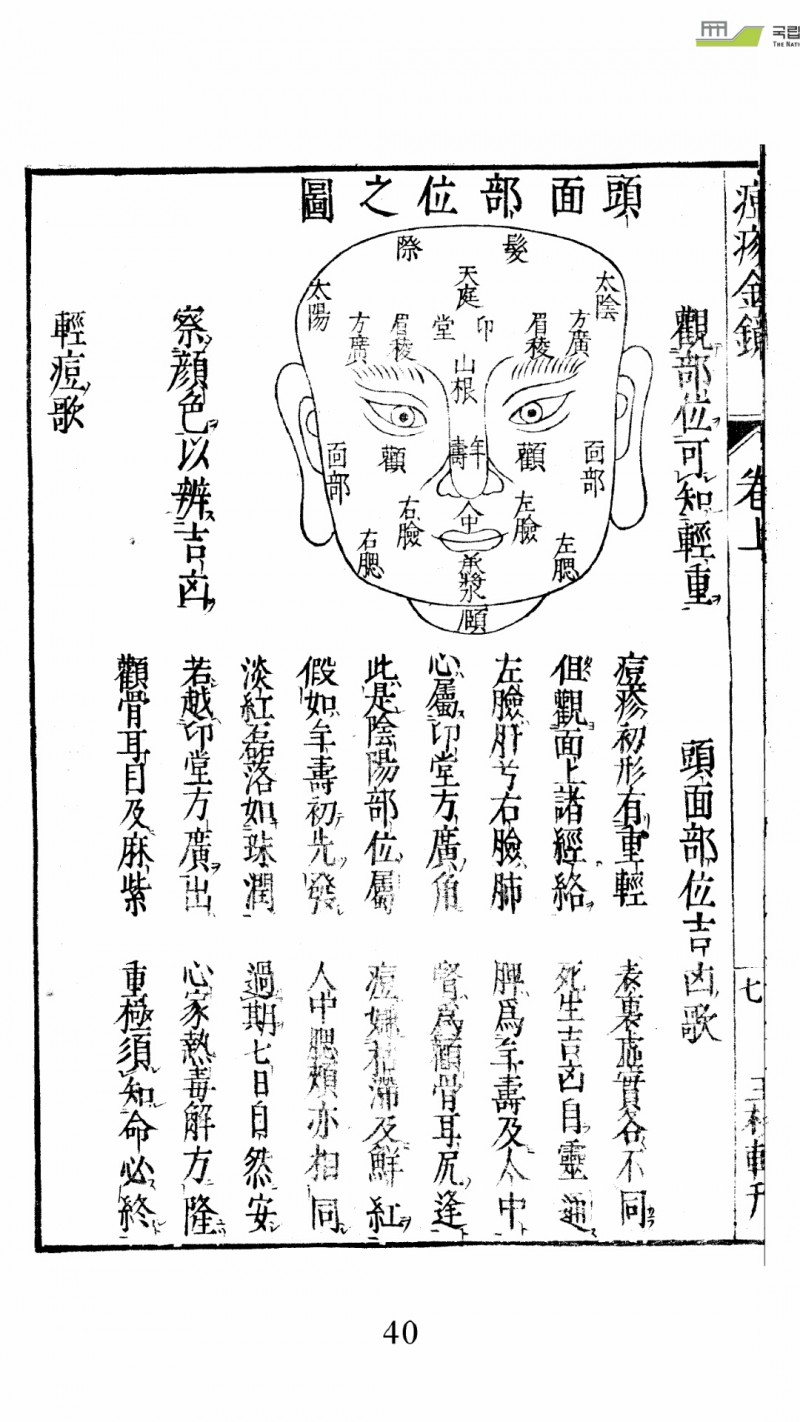 국립
THE NATI
痘疹金鏡
卷上
七
頭面部位之圖
髮際
天庭
太陰
太陽
方廣
眉稜
印堂
眉稜
方廣
山根
年壽
顴
顴
面部
面部
左臉
右臉
人中
左腮
右腮
承漿
頤
觀部位可知輕重
頭面部位吉凶歌
痘疹初形有重輕 表裏虛實各不同
但觀面上諸經絡 死生吉凶自靈通
左臉肝兮右臉肺 脾為年壽及人中
心屬印堂方廣角 腎為顴骨耳尻逢
此是陰陽部位屬 痘 滯及鮮紅
假如年壽初先發 人中腮頰亦相同
淡紅磊落如珠潤 過期七日自然安
若越印堂方廣出 心家熱毒解方隆
顴骨耳目及麻紫 重極須知命必終
察顏色以辨吉凶
輕痘歌
40